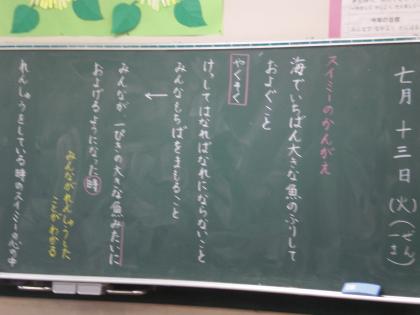 七月十三日(火)(ぜんーま)
スイミーのかんがえ
海でいちばん大きな魚のふりして
およぐこと
やくそく
けっしてはなればなれにならないこと
みんなもちばをまもること
←
みんなが一ぴきの大きな魚みたいに
およげるようになった時
みんながれんしゅうした
ことがわかる
れんしゅうをしている時のスイミーの心の中